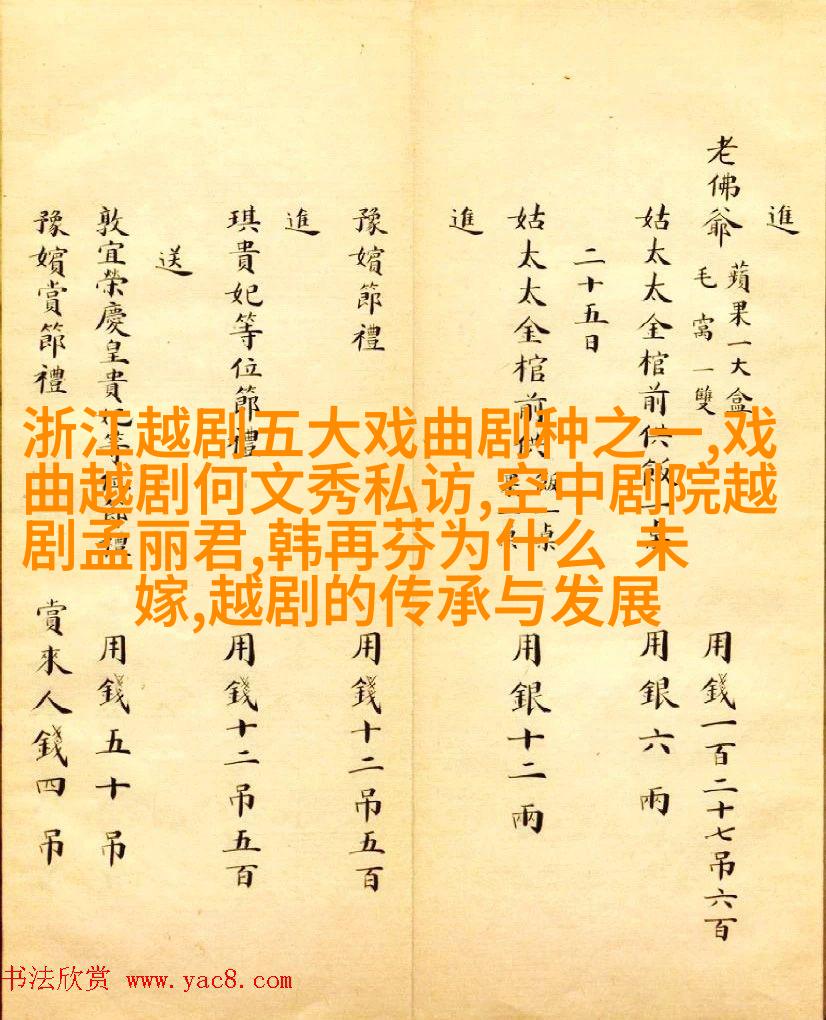 進
老佛爺 蘋果一大盒 毛窩一雙 用錢一百二十七吊六百
姑太太金棺前供飯一桌 用銀六兩
二十五日
姑太太金棺前供 飯一桌 用銀十二兩
進
豫嬪節禮 用錢十二吊五百
進
琪貴妃等位節禮 用錢十二吊五百
送
敦宜榮慶皇貴妃等位節禮 用錢五十吊
豫嬪賞節禮 賞來人錢四吊
浙江越剧五大戏曲剧种之一,戏
曲越剧何文秀私访,空中剧院越
剧孟丽君,韩再芬为什么 未
嫁,越剧的传承与发展
书法欣赏 www.yac8.com